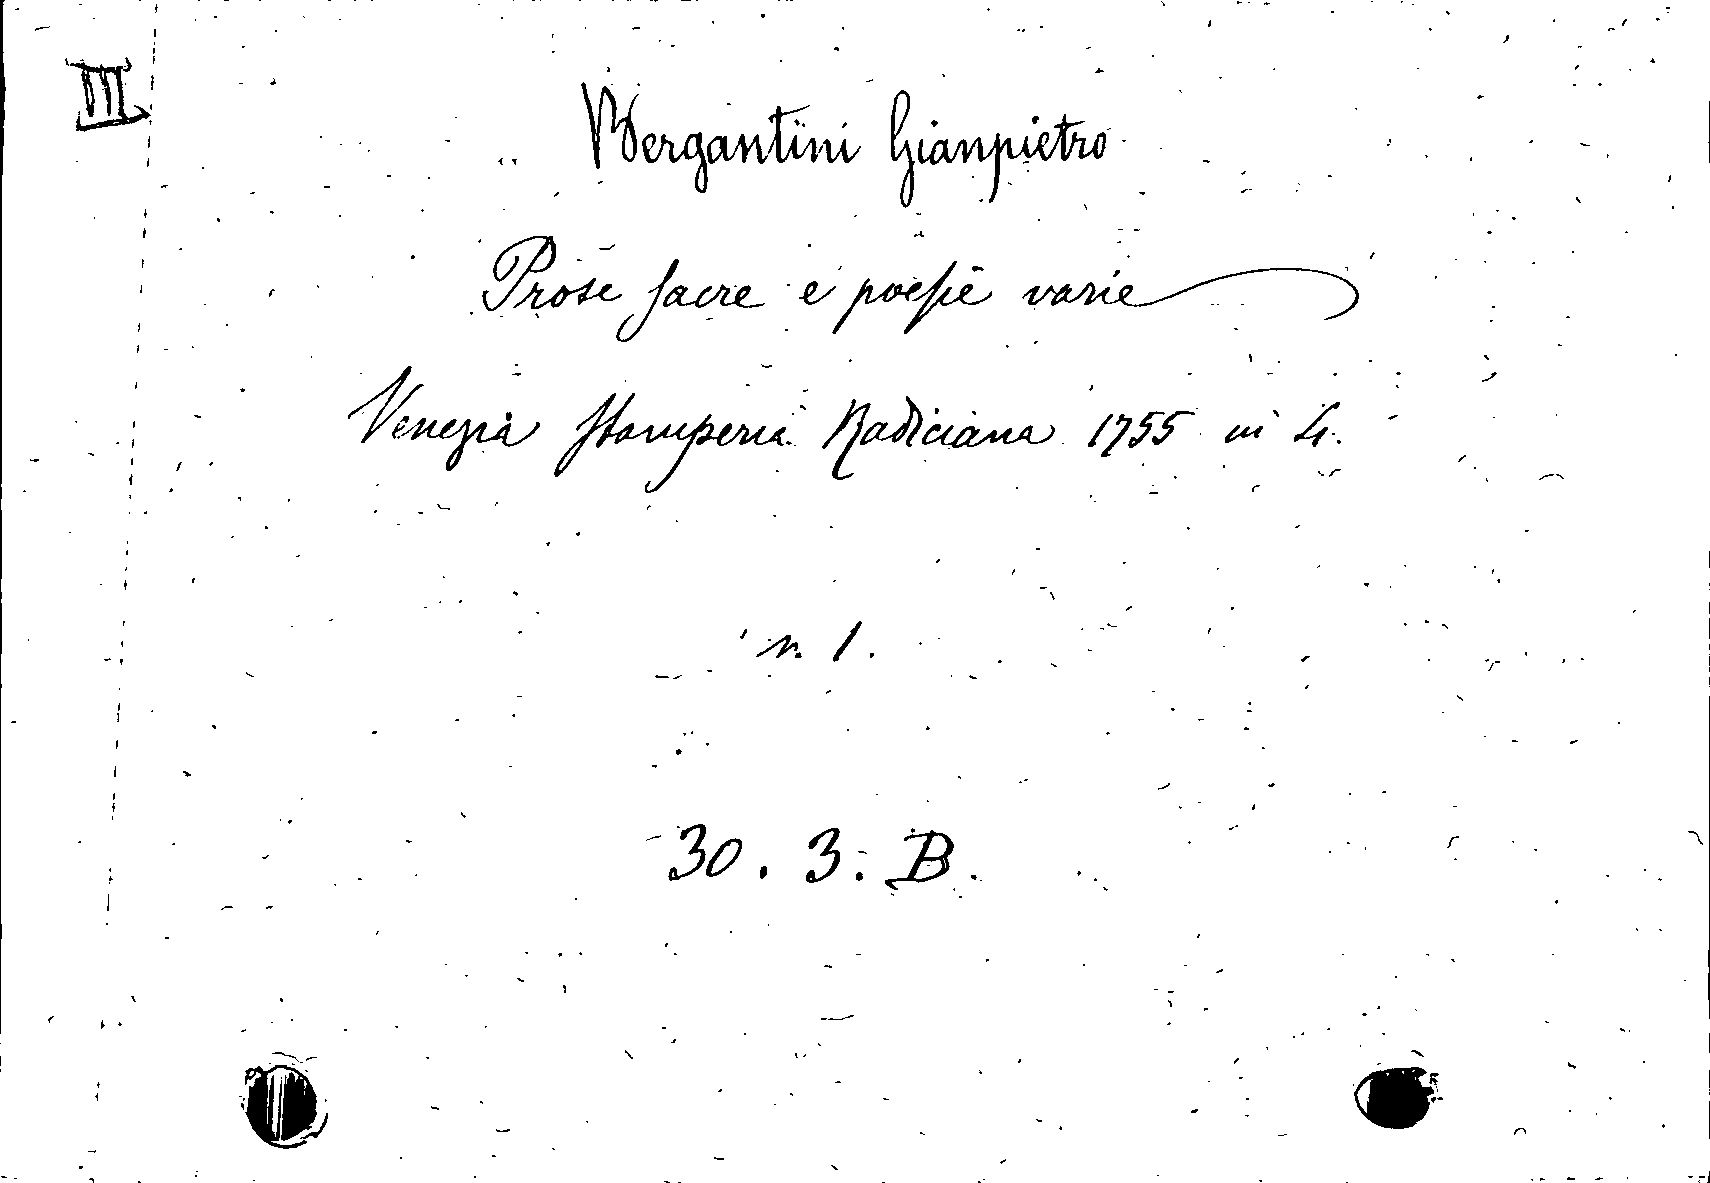 III
Bergantini Gianpietro
Prose sacre e poesie varie
Venezia Stamperia Radiciana 1755 in 4.
n. 1.
30. 3. B.